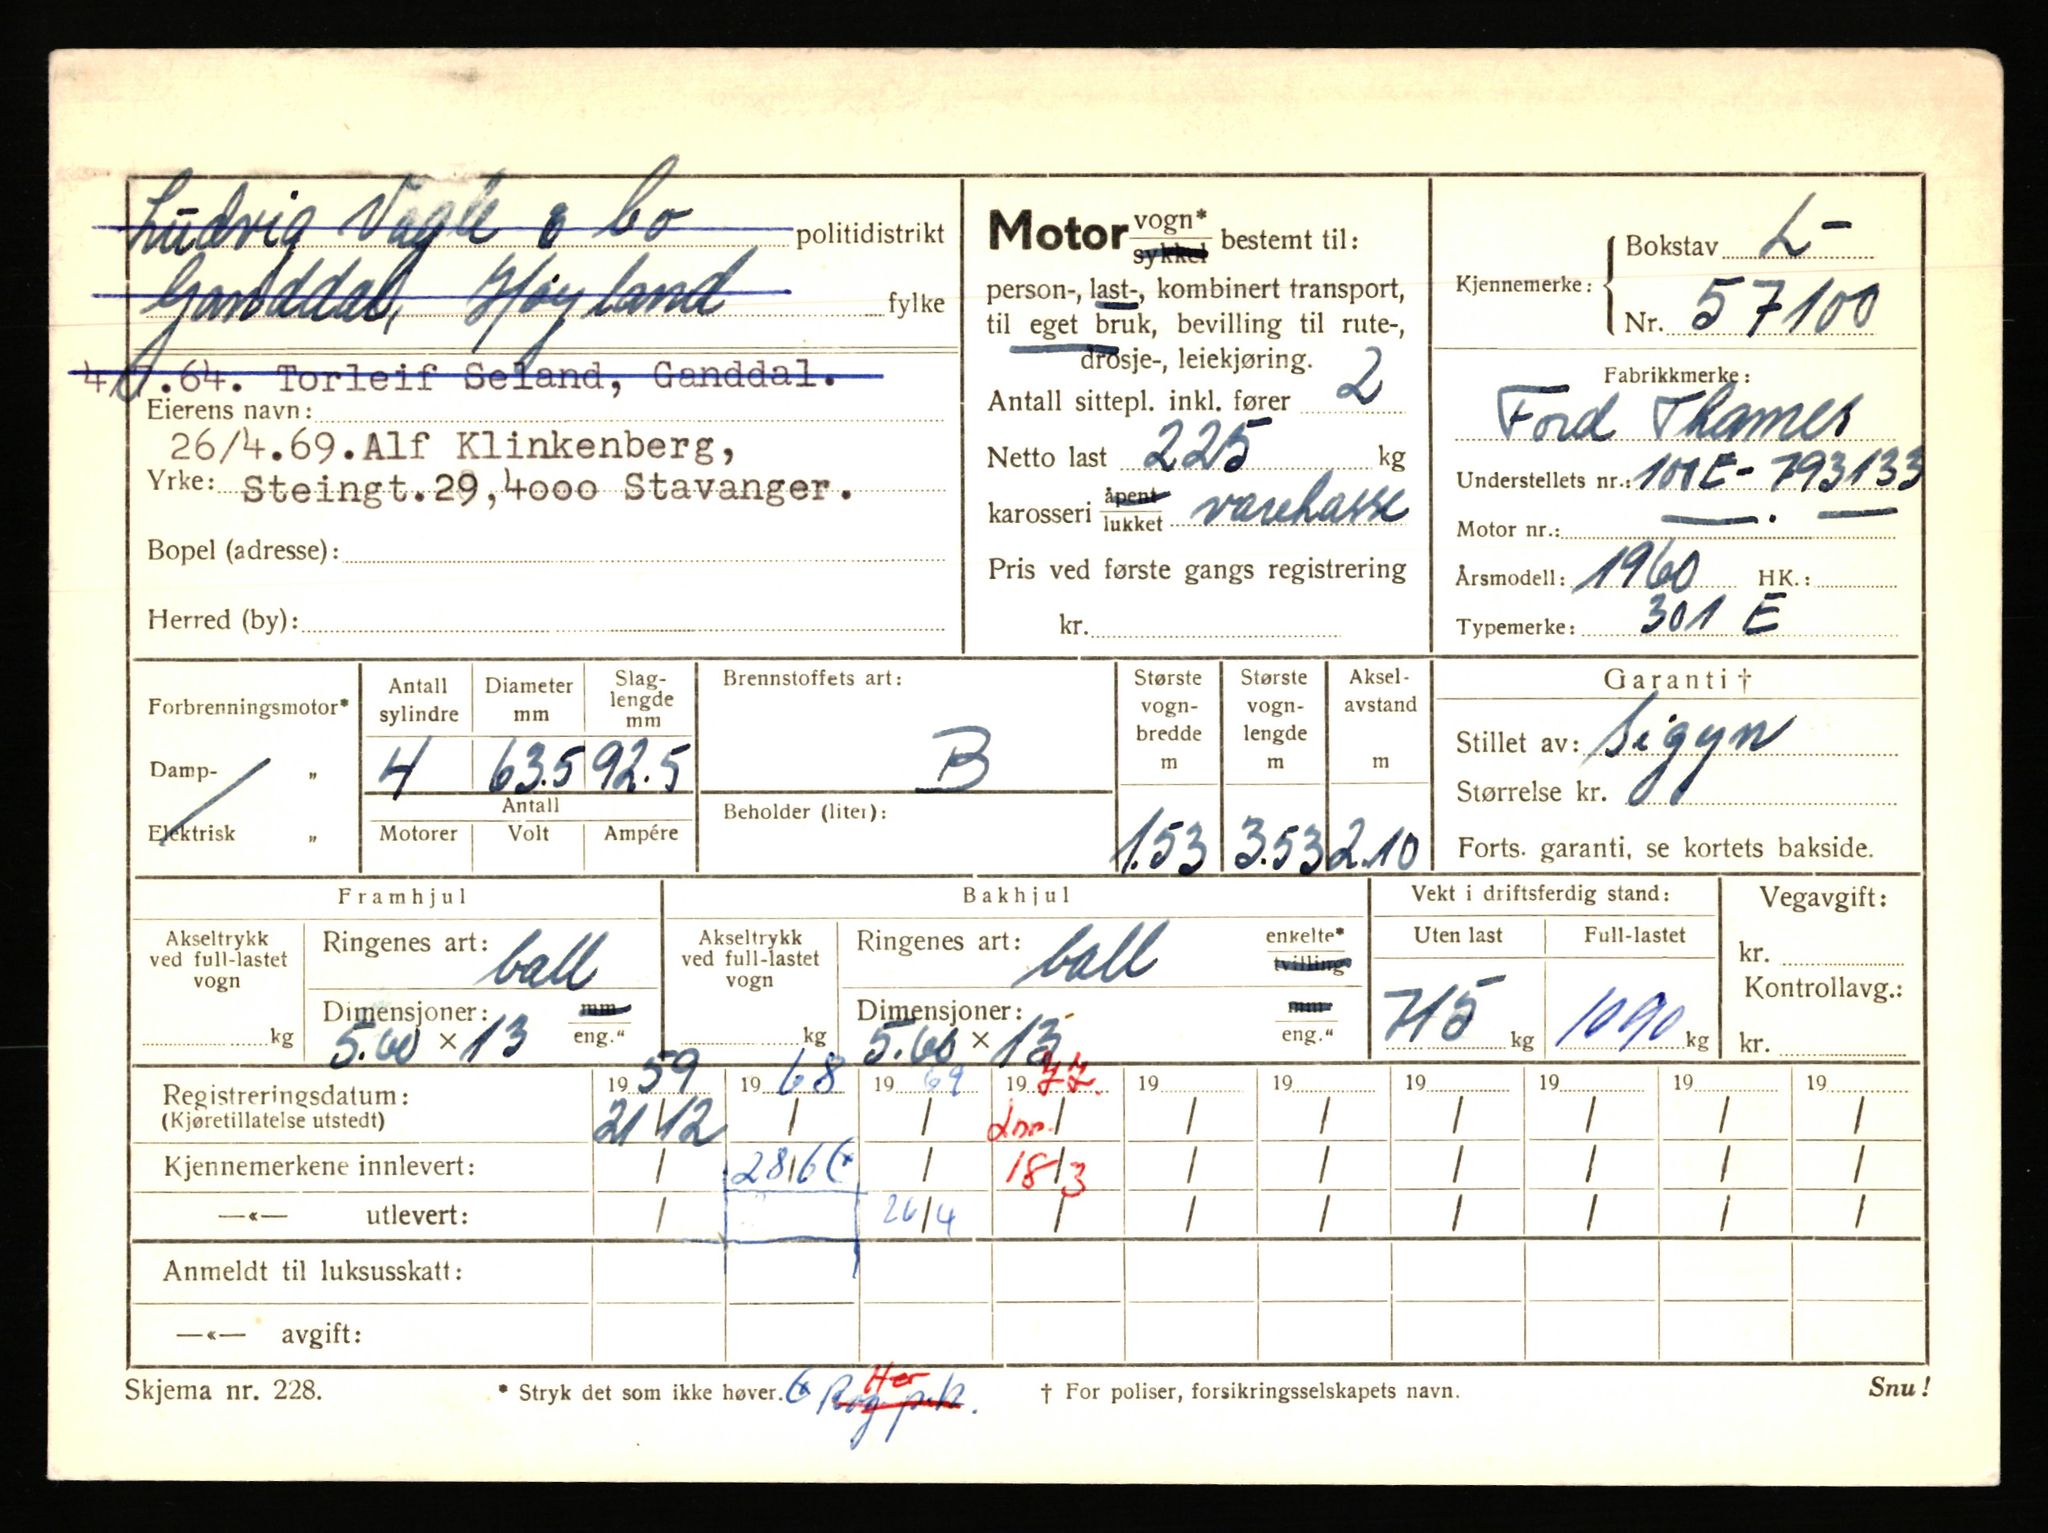 Ludvig Vagle & Co politidistrikt
Ganddal, Høyland fylke
4/7.64. Torleif Seland, Ganddal.
Eierens navn:
26/4.69.Alf Klinkenberg,
Yrke: Steingt.29,4000 Stavanger.
Bopel (adresse):
Herred (by):
Motor vogn* sykkel bestemt til:
person-, last-, kombinert transport,
til eget bruk, bevilling til rute-,
drosje-, leiekjøring.
Antall sittepl. inkl. fører 2
Netto last 225 kg
karosseri åpent lukket varekasse
Pris ved første gangs registrering
kr.
Kjennemerke: Bokstav L-
Nr. 57100
Fabrikkmerke:
Ford Thames
Understellets nr.: 101E-793133
Motor nr.: — . —
Årsmodell: 1960 HK.:
Typemerke: 301 E
Forbrenningsmotor*
Damp- „
Elektrisk „
Antall sylindre 4
Diameter mm 63.5
Slaglengde mm 92.5
Antall
Motorer Volt Ampére
Brennstoffets art:
B
Beholder (liter):
Største vogn-bredde m 1.53
Største vogn-lengde m 3.53
Aksel-avstand m 2.10
Garanti †
Stillet av: Sigyn
Størrelse kr.
Forts. garanti, se kortets bakside.
Framhjul
Akseltrykk ved full-lastet vogn
kg
Ringenes art: ball
Dimensjoner: mm eng.“
5.60 x 13
Bakhjul
Akseltrykk ved full-lastet vogn
kg
Ringenes art: ball enkelte* tvilling
Dimensjoner: mm eng.“
5.60 x 13
Vekt i driftsferdig stand:
Uten last Full-lastet
715 kg 1090 kg
Vegavgift:
kr.
Kontrollavg.:
kr.
Registreringsdatum: 1959 1968 1969 1972 19 19 19 19 19 19
(Kjøretillatelse utstedt) 21/12 / / / / / / / / /
Kjennemerkene innlevert: / 28/6 (* / 18/3 / / / / / /
—«— utlevert: / 26/4 / / / / / / /
Anmeldt til luksusskatt:
—«— avgift:
Skjema nr. 228.
* Stryk det som ikke høver.
(* Rog p.k. Her
† For poliser, forsikringsselskapets navn.
Snu!